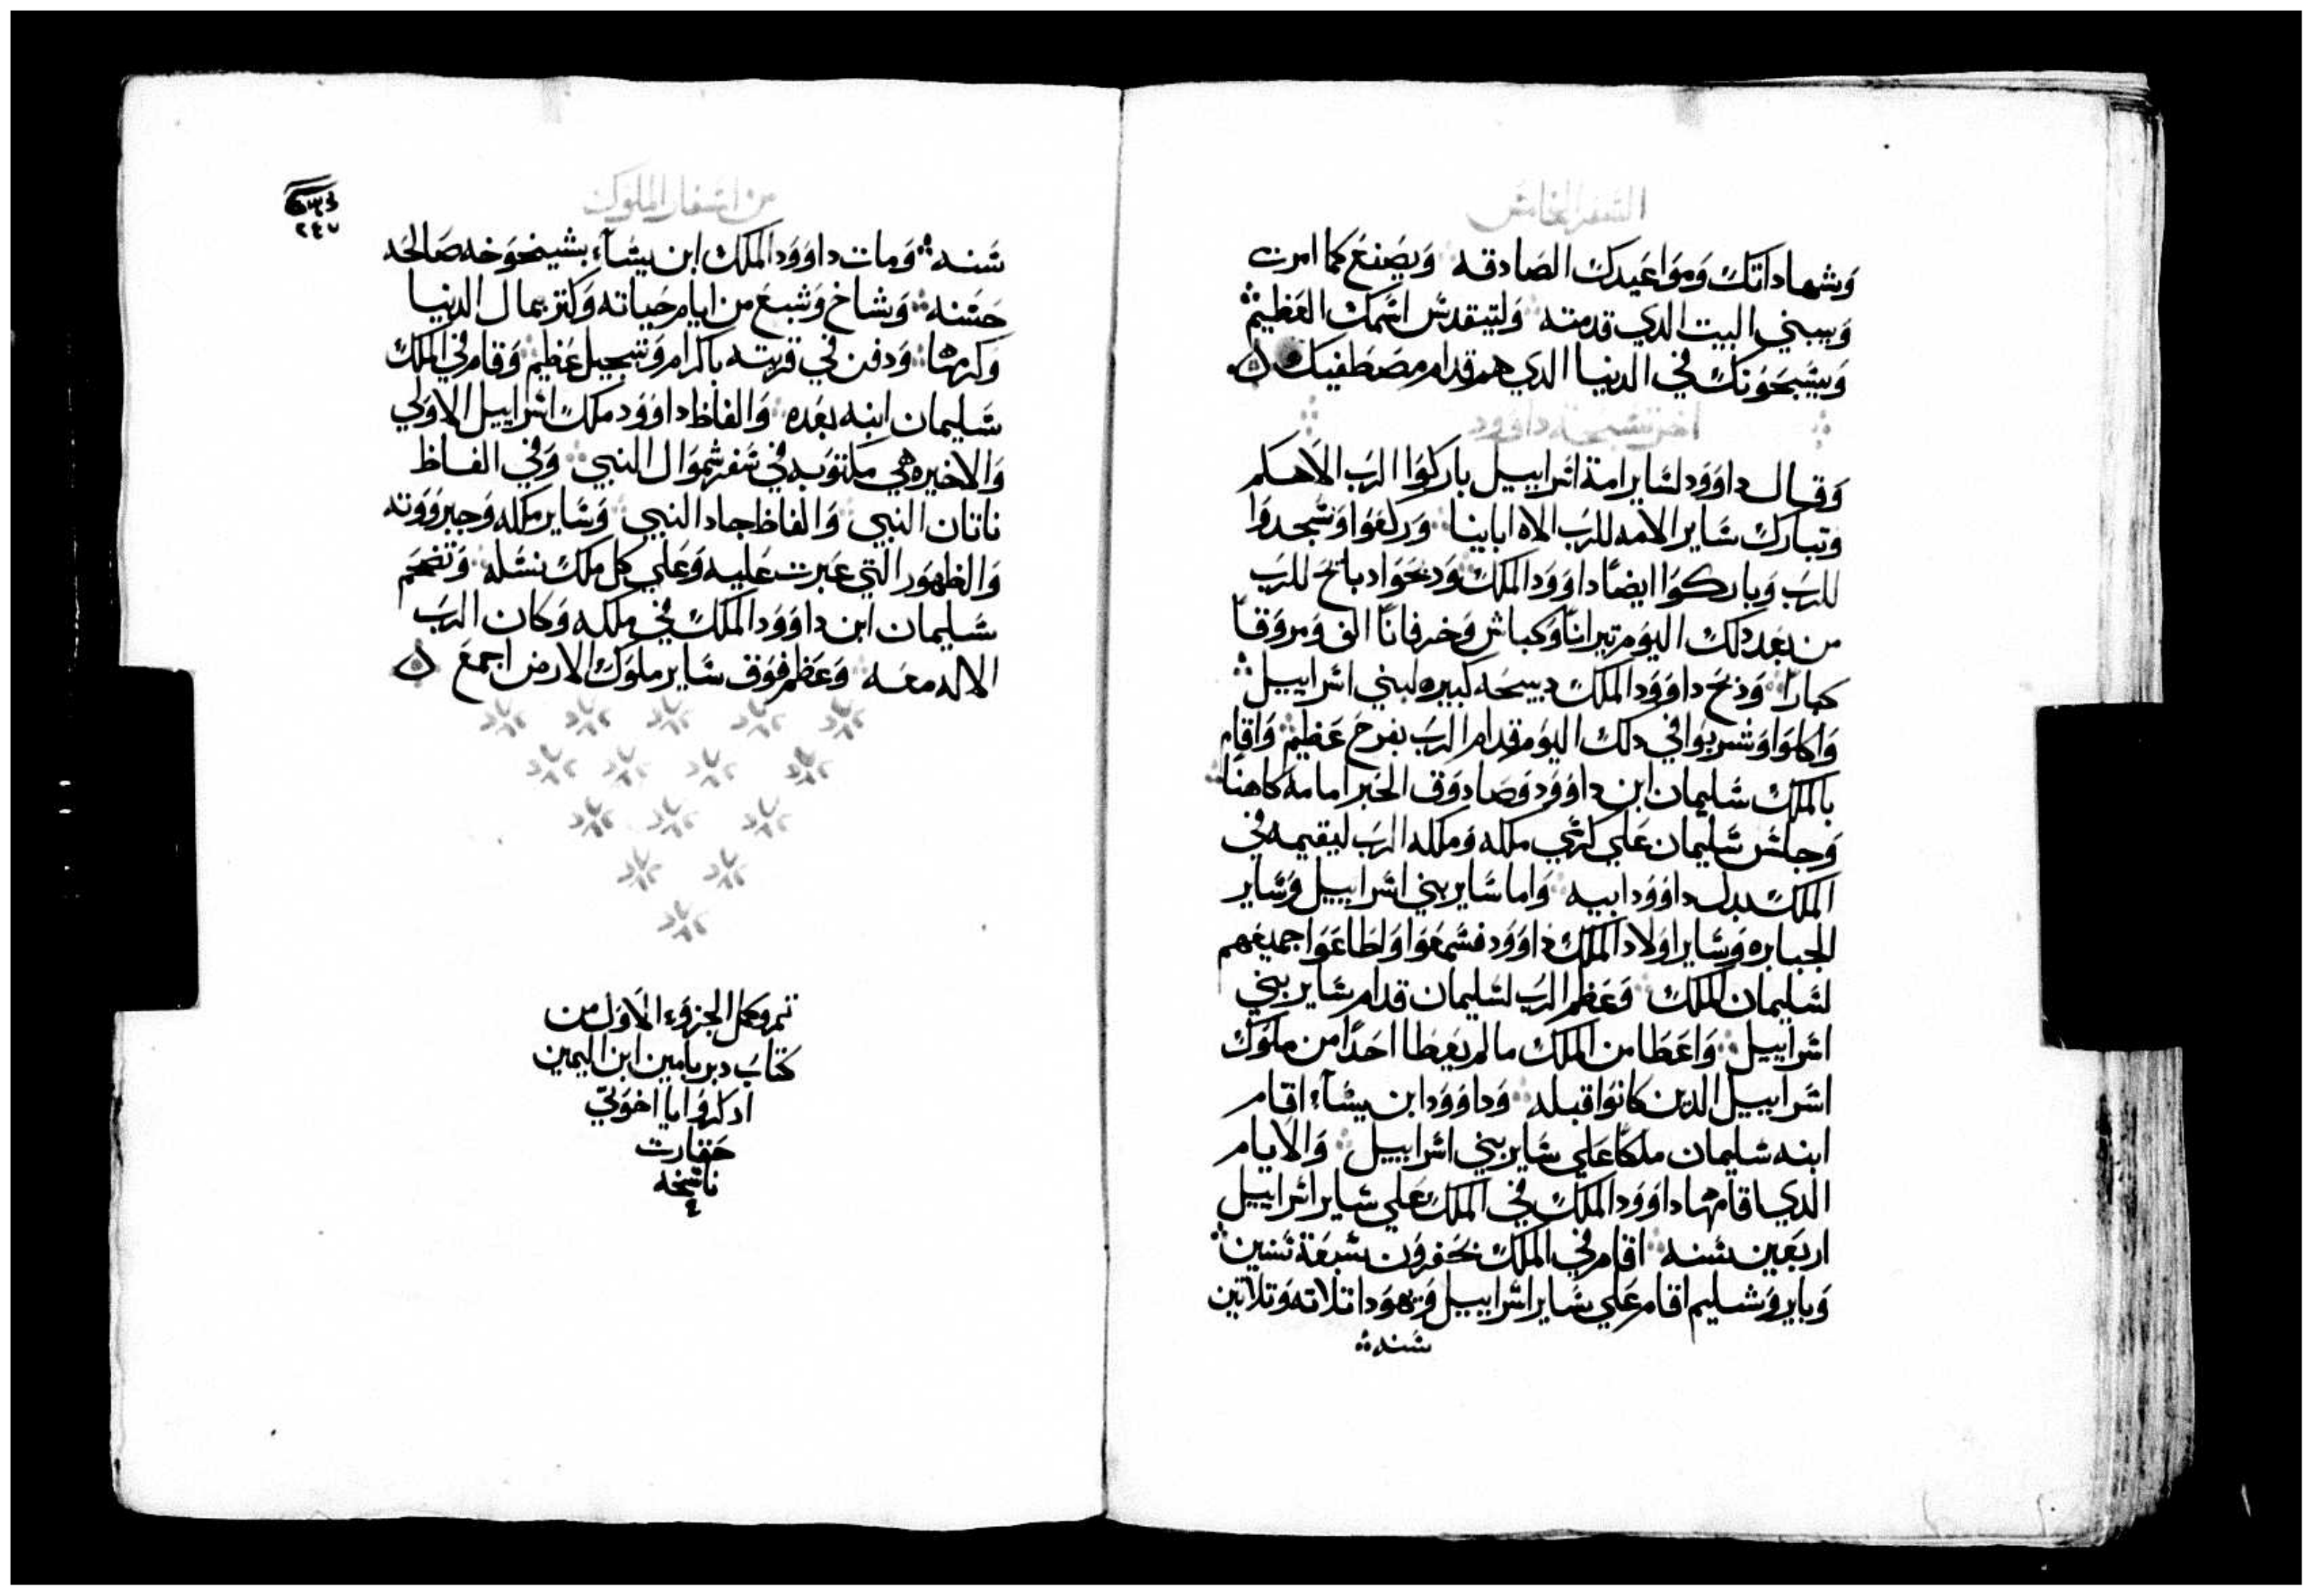 السفر الخامس
وشهاداتك ومواعيدك الصادقه وبصنع كما امرت
ويبني البيت الدي قدمته وليتقدس اسمك العظيم
ويسبحونك في الدنيا الدي هم قدام مصطفيك
اخر تسبحة داوود
وقال داوود لساير امة اسراييل باركوا الرب الاهكم
وتبارك ساير الامه للرب الاه اباينا وركعوا وسجدوا
للرب وباركوا ايضا داوود الملك ودبحوا دبايح للرب
من بعد دلك اليوم تيرانا وكباش وخرفانا الف ومروقا
كبارا وذبح داوود الملك دبيحه كبيره لبني اسراييل
واكلوا وشربوا في دلك اليوم قدام الرب بفرح عظيم واقام
بالملك سليمان ابن داوود وصادوق الحبر امامه كاهنا
وجلس سليمان علي كرسي ملكه وملكه الرب ليقيمه في
الملك بدل داوود ابيه واما ساير بني اسراييل وساير
الجبابره وساير اولاد الملك داوود فسمعوا واطاعوا جميعهم
لسليمان الملك وعظم الرب لسليمان قدام ساير بني
اسراييل واعطا من الملك ما لم يعطا احدا من ملوك
اسراييل الدين كانوا قبله وداوود ابن يساء اقام
ابنه سليمان ملكا علي ساير بني اسراييل والايام
الدي اقامها داوود الملك في الملك علي ساير اسراييل
اربعين سنه اقام في الملك بحفرون سبعة سنين
وبايروشليم اقام علي ساير اسراييل ويهودا تلاته وتلاتين
سنه
من اسفار الملوك
٢٤٧
سنه ومات داوود الملك ابن يساء بشيخوخه صالحه
حسنه وشاخ وشبع من ايام حياته وكتر بمال الدنيا
وكرمها ودفن في قريته باكرام وتبجيل عظيم وقام في الملك
سليمان ابنه بعده والفاظ داوود ملك اسراييل الاولي
والاخيره هي مكتوبه في سفر شموال النبي وفي الفاظ
ناتان النبي والفاظ جاد النبي وساير ملكه وجبرووته
والظهور التي عبرت عليه وعلي كل ملك نسله وتضخم
سليمان ابن داوود الملك في ملكه وكان الرب
الاله معه وعظم فوق ساير ملوك الارض اجمع
تم وكمل الجزوء الاول من
كتاب دبريامين ابن اليمين
ادكروا يا اخوتي
حقارت
ناسخه